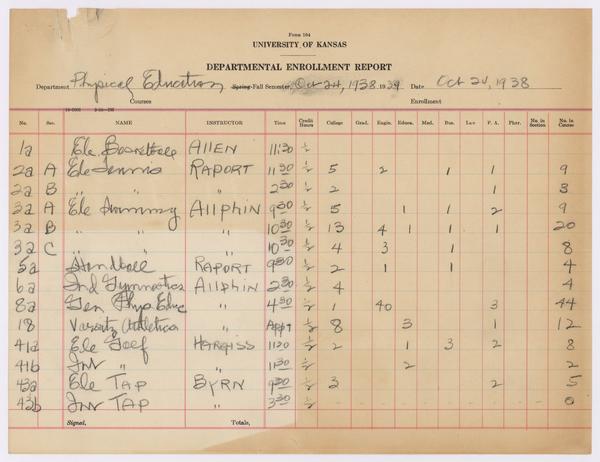 Form 104
UNIVERSITY OF KANSAS
DEPARTMENTAL ENROLLMENT REPORT
Department Physical Education Spring-Fall Semester, Oct 24, 1938 1939 Date Oct 24, 1938
Courses Enrollment
No. Sec. NAME INSTRUCTOR Time Credit Hours College Grad. Engin. Educa. Med. Bus. Law F. A. Phar. No. in Section No. in Course
1a Ele. Basketball ALLEN 11:30 ½
2a A Ele Tennis RAPORT 11:30 ½ 5 2 1 1 9
2a B " " " 2:30 ½ 2 1 3
3a A Ele Swimming Allphin 9:30 ½ 5 1 1 2 9
3a B " " " 10:30 ½ 13 4 1 1 1 20
3a C " " " 10:30 ½ 4 3 1 8
5a Handball RAPORT 9:30 ½ 2 1 1 4
6a Ind Gymnastics Allphin 2:30 ½ 4 4
8a Gen Phys Educ " 4:30 ½ 1 40 3 44
18 Varsity Athletics " Appt ½ 8 3 1 12
41a Ele Golf HARGISS 11:20 ½ 2 1 3 2 8
41b Int " " 11:30 ½ 2 2
43a Ele TAP BYRN 9:30 ½ 3 2 5
43b Int TAP " 3:30 ½ 0
Signed, Totals,